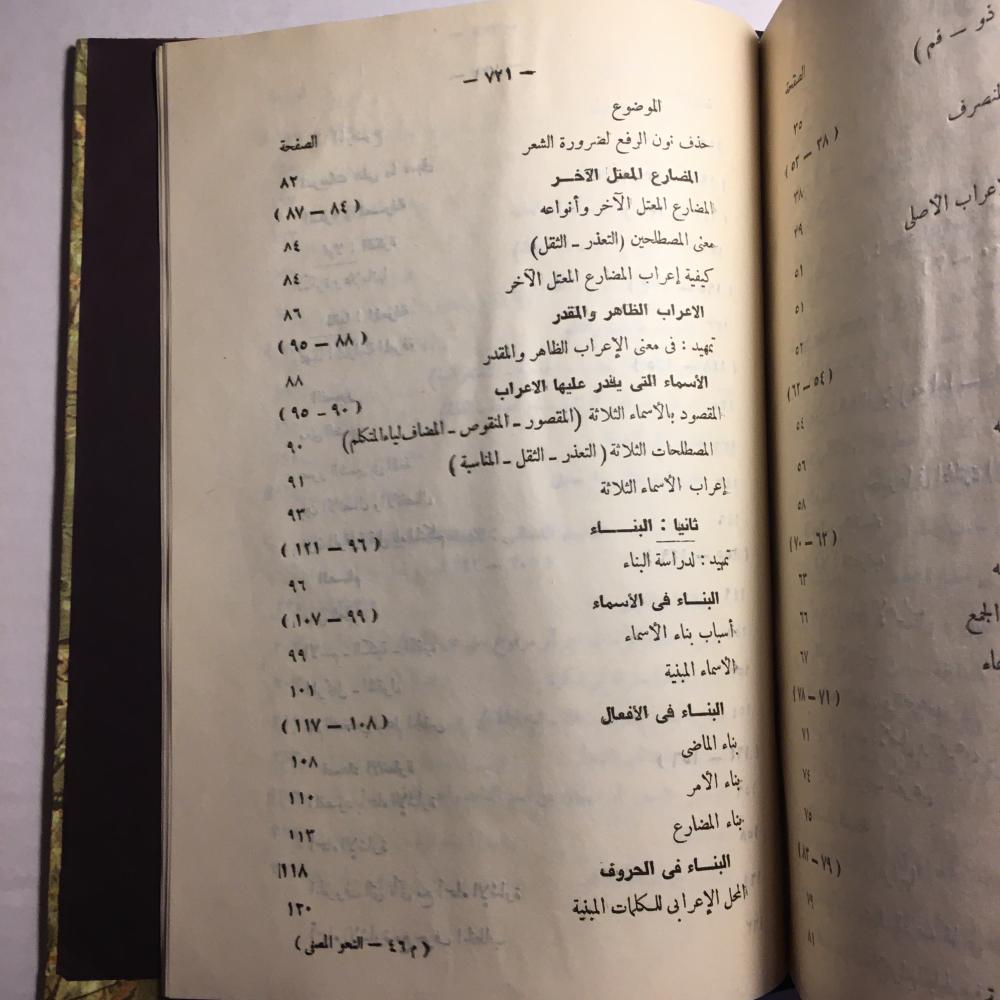 ذو – فم )
الصفحة
٣٥
( ٣٨ – ٥٣ )
٣٨
الأصلى ٣٩
٥١
٥١
٥٢
( ٥٤ – ٦٢ )
٥٤
٥٦
٥٨
( ٦٣ – ٧٠ )
٦٣
٦٦
الجمع ٦٧
( ٧١ – ٧٨ )
٧١
٧٤
٧٥
( ٧٩ – ٨٣ )
٧٩
٨١
– ٧٢١ –
الموضوع الصفحة
حذف نون الرفع لضرورة الشعر ٨٢
المضارع المعتل الآخـر ( ٨٤ – ٨٧ )
المضارع المعتل الآخر وأنواعه ٨٤
معنى المصطلحين (التعذر – الثقل) ٨٤
كيفية إعراب المضارع المعتل الآخر ٨٦
الاعراب الظاهر والمقدر ( ٨٨ – ٩٥ )
تمهيد : فى معنى الإعراب الظاهر والمقدر ٨٨
الأسماء التى يقدر عليها الاعراب ( ٩٠ – ٩٥ )
المقصود بالأسماء الثلاثة (المقصور – المنقوص – المضاف لياء المتكلم) ٩٠
المصطلحات الثلاثة ( التعذر – الثقل – المناسبة ) ٩١
إعراب الأسماء الثلاثة ٩٣
ثانيا : البنـــاء ( ٩٦ – ١٢١ )
تمهيد : لدراسة البناء ٩٦
البنـاء فى الأسماء ( ٩٩ – ١٠٧ )
أسباب بناء الأسماء ٩٩
الأسماء المبنية ١٠١
البناء فى الأفعال ( ١٠٨ – ١١٧ )
بناء الماضي ١٠٨
بناء الأمر ١١٠
بناء المضارع ١١٣
البناء فى الحروف ١١٨
المحل الإعرابى للكلمات المبنية ١٢٠
( م ٤٦ – النحو المصفى )